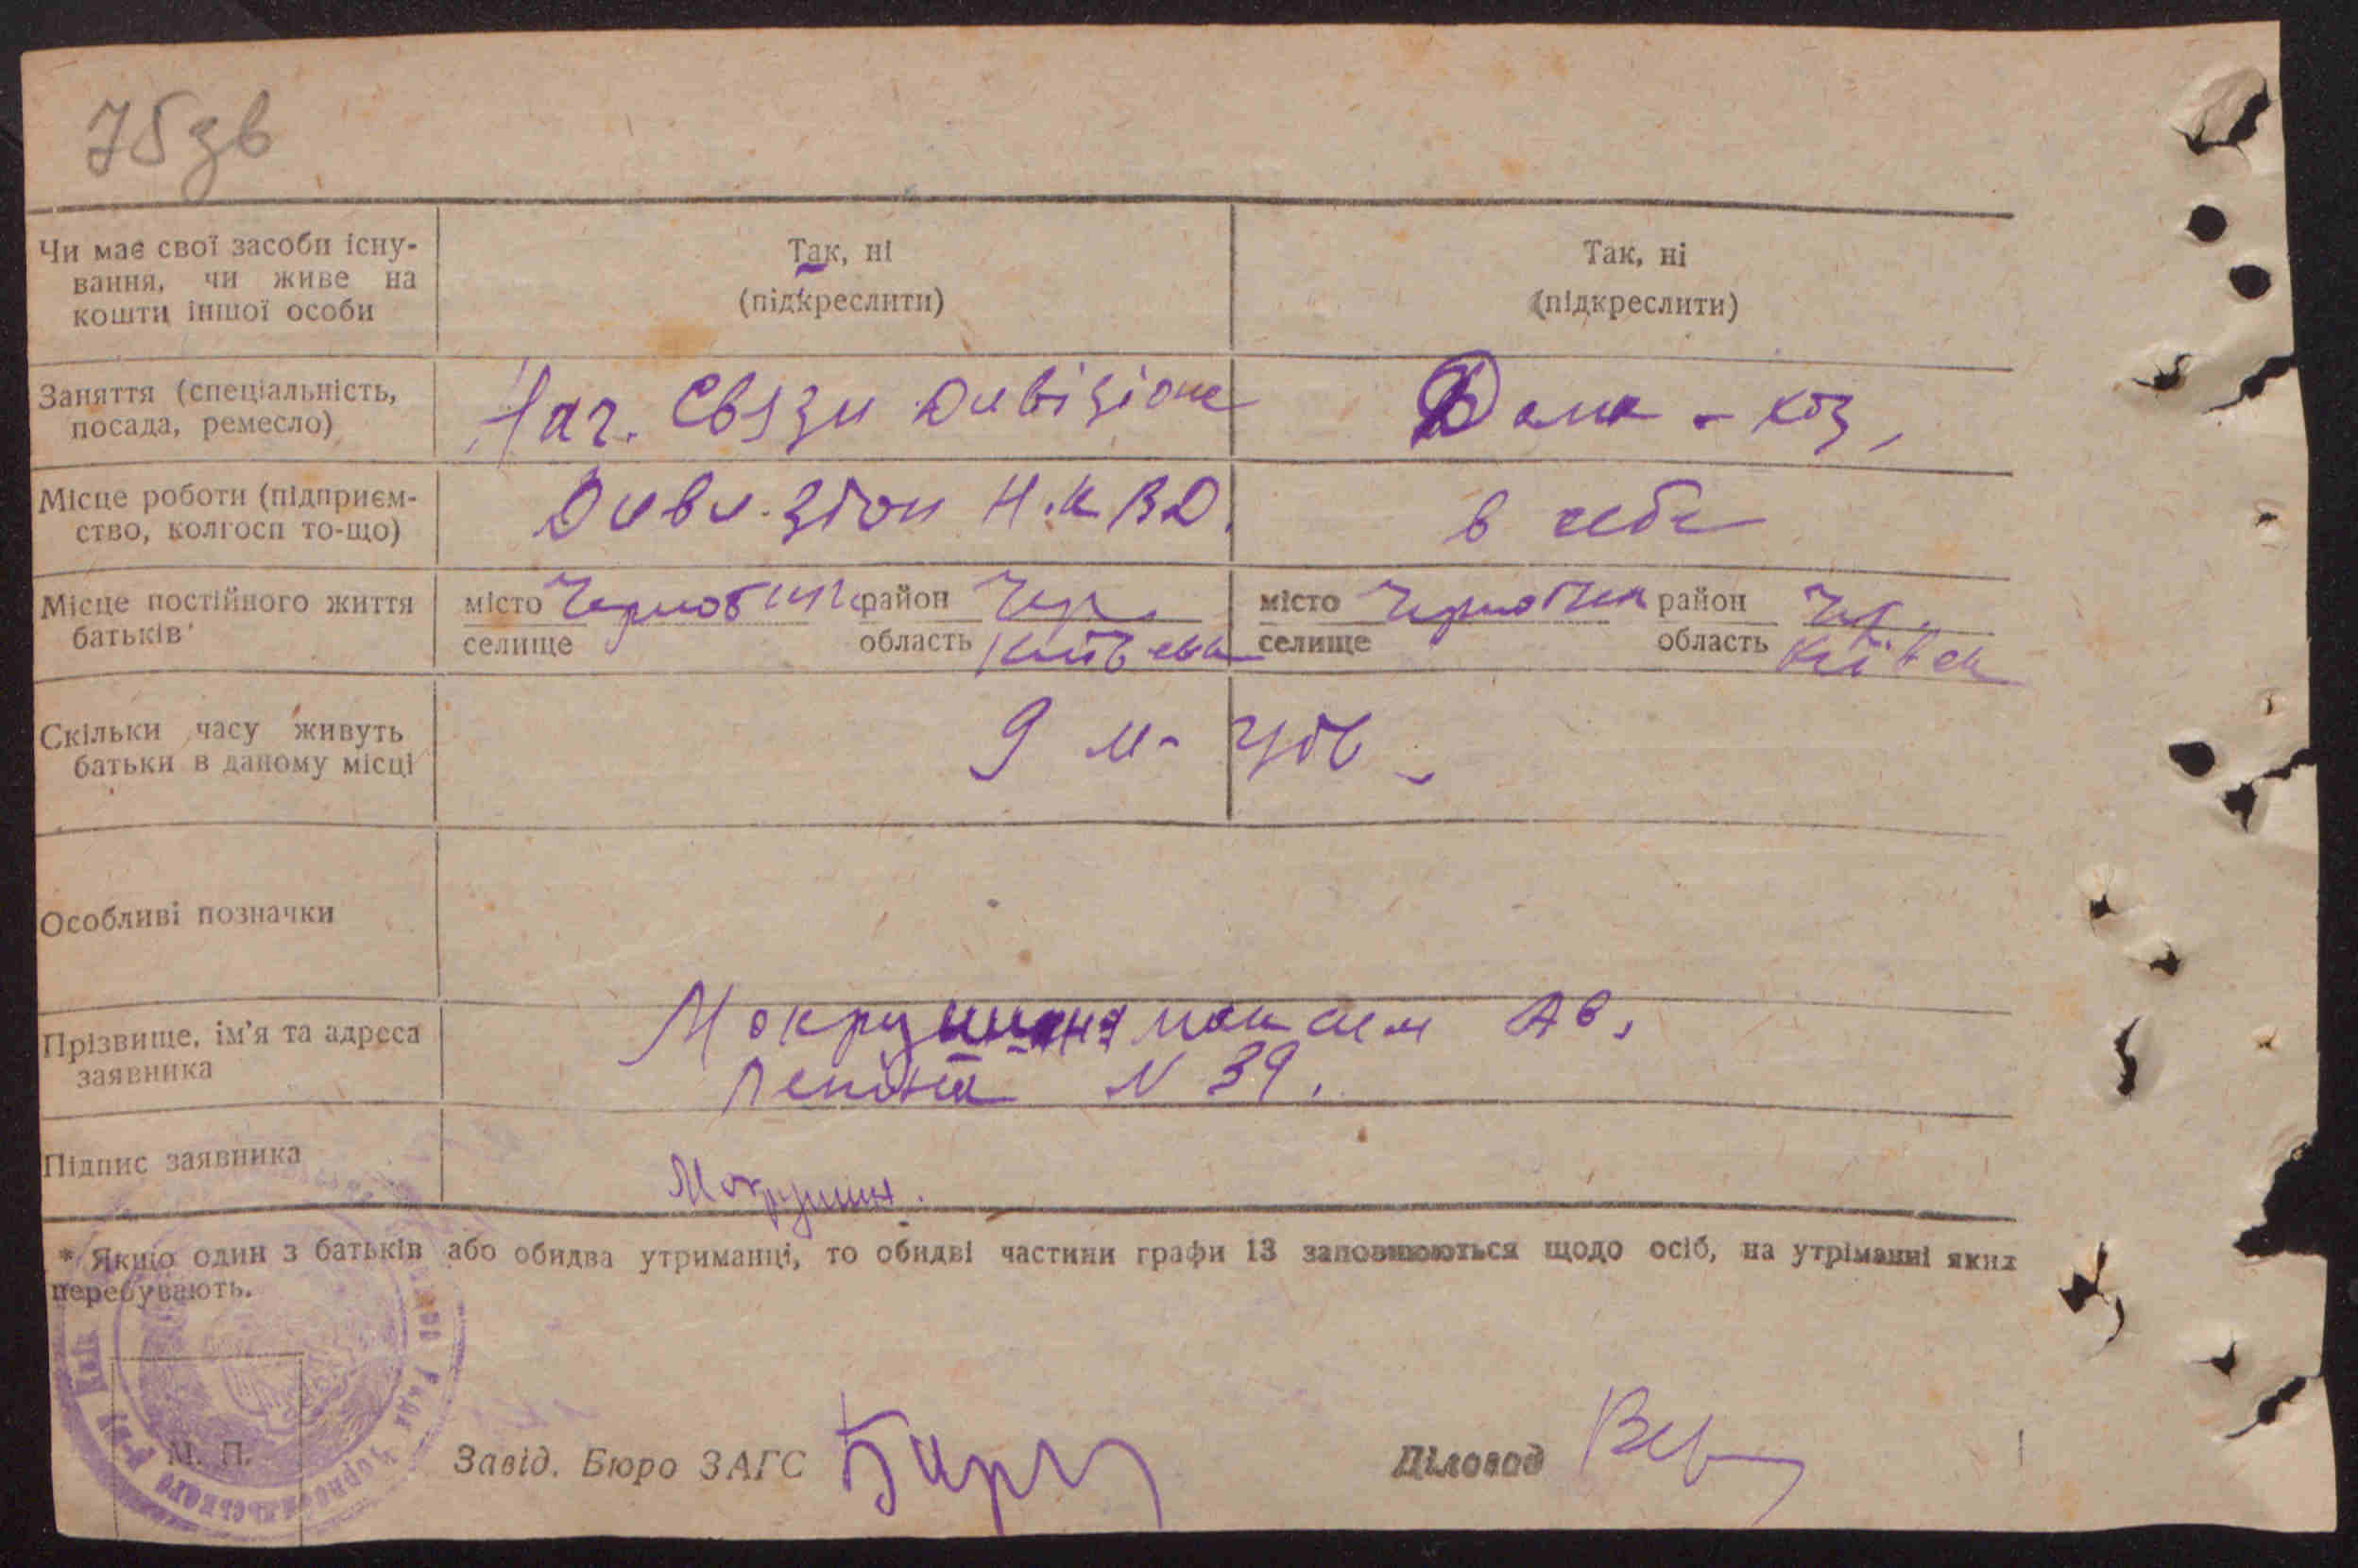 75 зв
Чи має свої засоби існу-
вання, чи живе на
кошти іншої особи
Так, ні
(підкреслити)
Так, ні
(підкреслити)
Заняття (спеціальність,
посада, ремесло)
Нач. Связи Дивізіоне
Дома - хоз,
Місце роботи (підприєм-
ство, колгосп то-що)
Диви-зіон Н.К.В.Д.
в себе
Місце постійного життя
батьків
місто Чернобил район Чер.
селище область Київськ
місто Чернобил район Чер.
селище область Київськ
Скільки часу живуть
батьки в даному місці
9 м-ців
Особливі позначки
Прізвище, ім'я та адреса
заявника
Ав,
Леніна N 39.
Підпис заявника
Мокрушин.
* Якщо один з батьків або обидва утриманці, то обидві частини графи 13 заповнюються щодо осіб, на утріманні яких
перебувають.
М. П.
Завід. Бюро ЗАГС
Діловод